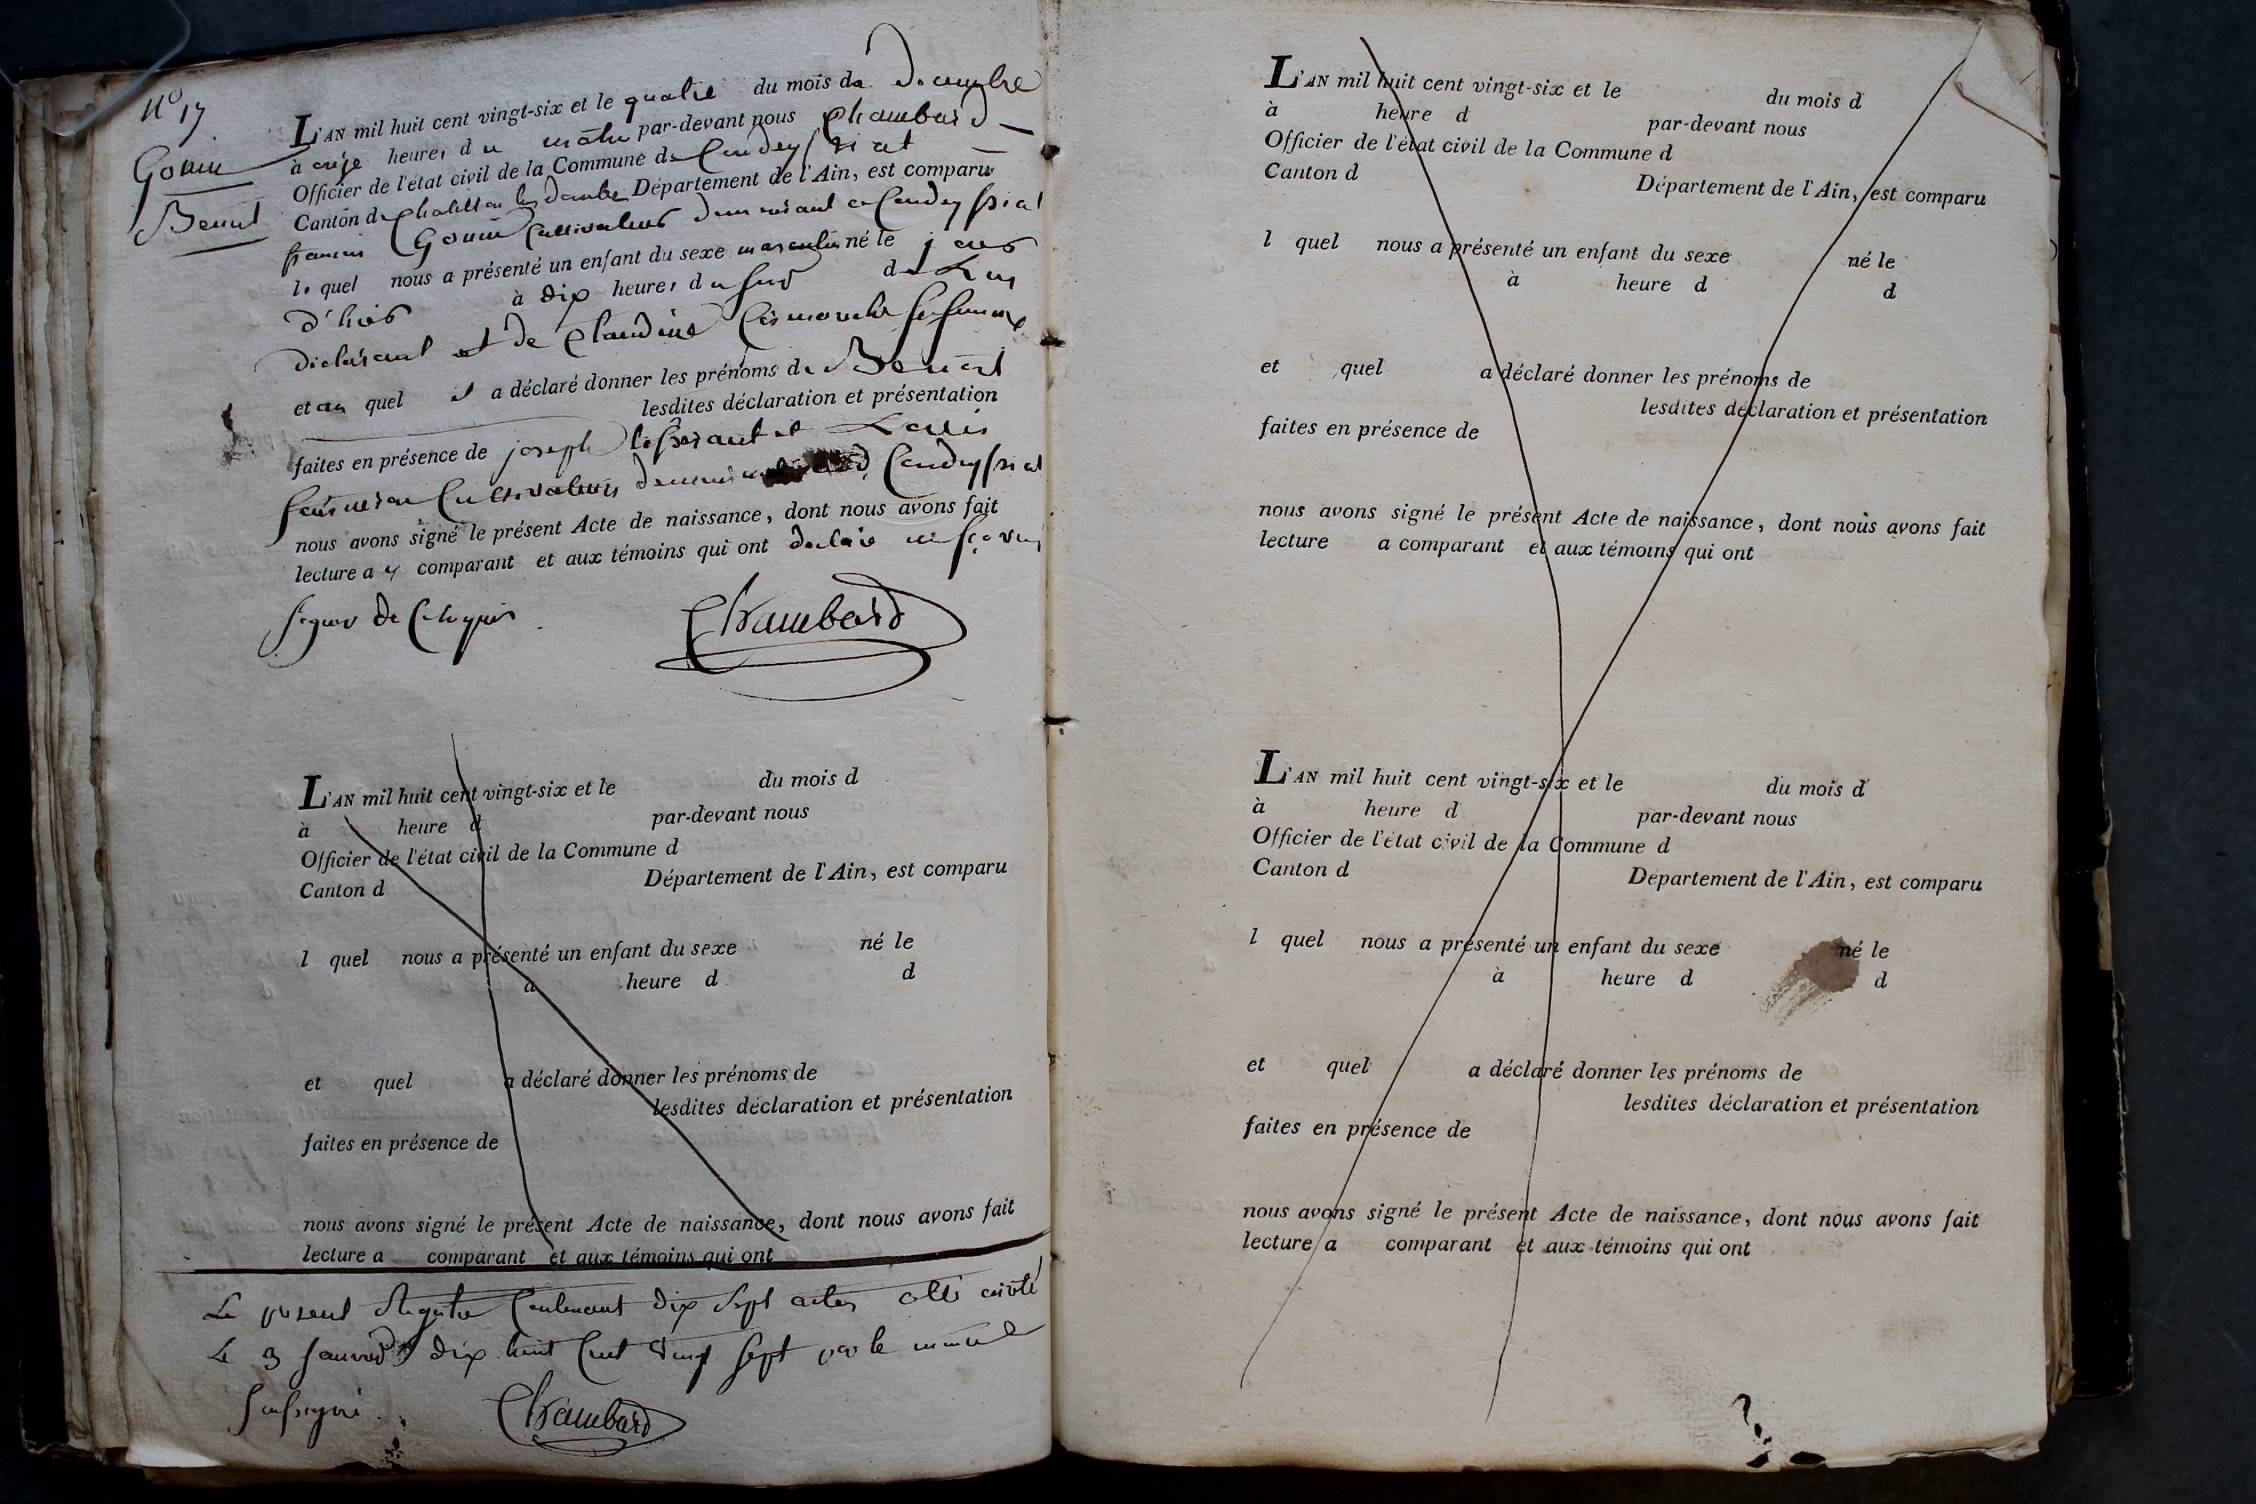 N° 17
Gonin
Benoit
L'AN mil huit cent vingt-six et le quatre du mois de decembre
à onze heures du matin par-devant nous Chambard
Officier de l'état civil de la Commune de Condeyssiat
Canton de Chatillon les dombes Département de l'Ain, est comparu
francois Gonin Cultivateur demeurant a Condeyssiat
le quel nous a présenté un enfant du sexe masculin né le jour
d'hier à dix heures du soir de Lui
declarant et de Claudine sa femme
et au quel il a déclaré donner les prénoms de Benoit
lesdites déclaration et présentation
faites en présence de joseph et Louis
Cultivateurs Condeyssiat
nous avons signé le présent Acte de naissance, dont nous avons fait
lecture au comparant et aux témoins qui ont declaré ne sçavoir
signer de Ce requis
Chambard
L'AN mil huit cent vingt-six et le du mois d
à heure d par-devant nous
Officier de l'état civil de la Commune d
Canton d Département de l'Ain, est comparu
l quel nous a présenté un enfant du sexe né le
à heure d d
et quel a déclaré donner les prénoms de
lesdites déclaration et présentation
faites en présence de
nous avons signé le présent Acte de naissance, dont nous avons fait
lecture a comparant et aux témoins qui ont
Le present Registre Contenant dix Sept actes
Le 3 Janvier dix huit Cent Vingt Sept par le maire
Soussigné
Chambard
L'AN mil huit cent vingt-six et le du mois d
à heure d par-devant nous
Officier de l'état civil de la Commune d
Canton d Département de l'Ain, est comparu
l quel nous a présenté un enfant du sexe né le
à heure d d
et quel a déclaré donner les prénoms de
lesdites déclaration et présentation
faites en présence de
nous avons signé le présent Acte de naissance, dont nous avons fait
lecture a comparant et aux témoins qui ont
L'AN mil huit cent vingt-six et le du mois d
à heure d par-devant nous
Officier de l'état civil de la Commune d
Canton d Département de l'Ain, est comparu
l quel nous a présenté un enfant du sexe né le
à heure d d
et quel a déclaré donner les prénoms de
lesdites déclaration et présentation
faites en présence de
nous avons signé le présent Acte de naissance, dont nous avons fait
lecture a comparant et aux témoins qui ont